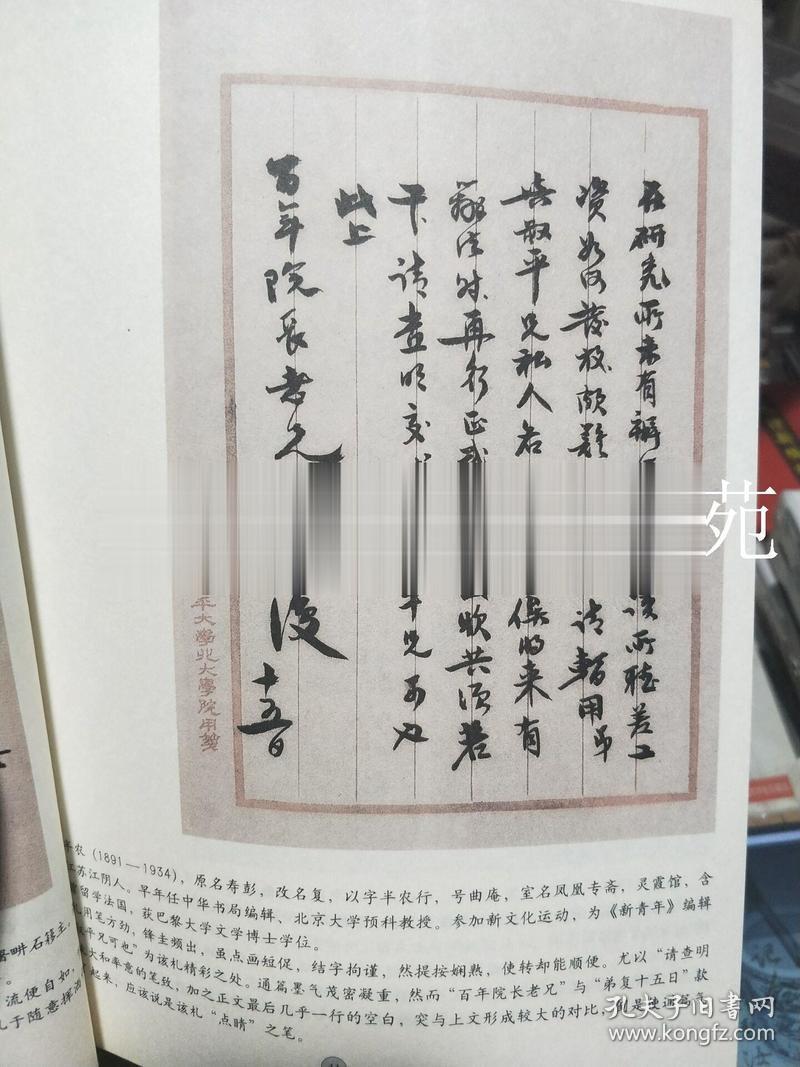 在研究所未有辦
该所聽差工
资如何發放頗難
请暫用弟
與叔平兄私人名
俟将来有
辦法时再行正式
款共须若
干请查明交
平兄可也
此上
百年院长老兄
復 十五日
平大學北大學院用箋
苑
农(1891—1934),原名寿彭,改名复,以字半农行,号曲庵,室名凤凰专斋,灵霞馆,含
江苏江阴人。早年任中华书局编辑、北京大学预科教授。参加新文化运动,为《新青年》编辑
留学法国,获巴黎大学文学博士学位。
用笔方劲,锋圭频出,虽点画短促,结字拘谨,然提按娴熟,使转却能顺便。尤以“请查明
平兄可也”为该札精彩之处。通篇墨气茂密凝重,然而“百年院长老兄”与“弟复十五日”款
大和率意的笔致,加之正文最后几乎一行的空白,突与上文形成较大的对比,
起来,应该说是该札“点睛”之笔。
畊石簃主
流便自如,
于随意挥洒
孔夫子旧书网
www.kongfz.com